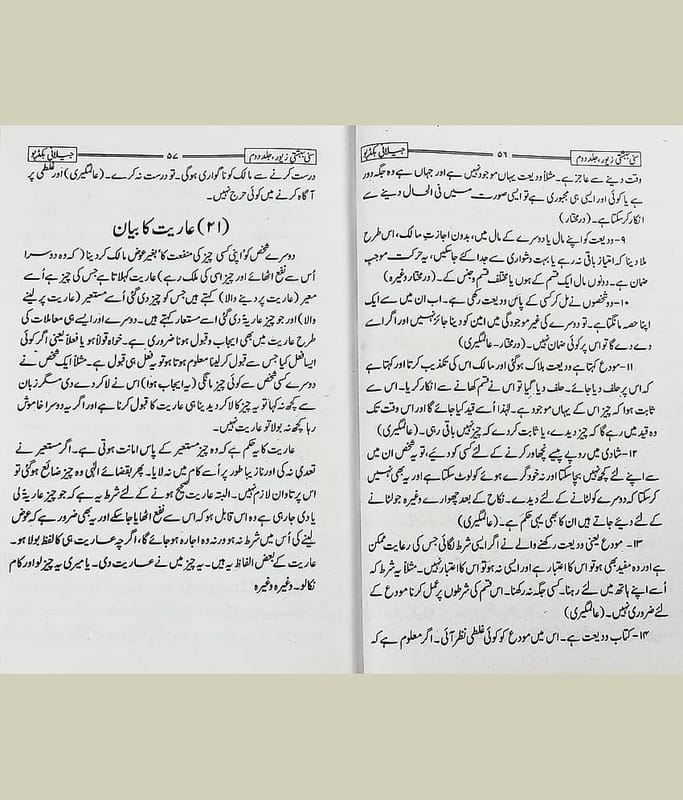 سنی بہشتی زیور، جلد دوم
۵۶
جیلانی بکڈپو
وقت دینے سے عاجز ہے۔ مثلاً ودیعت یہاں موجود نہیں ہے اور جہاں ہے وہ جگہ دور
ہے یا کوئی اور ایسی ہی مجبوری ہے تو ایسی صورت میں فی الحال دینے سے
انکار کر سکتا ہے۔ (درمختار)
۹- ودیعت کو اپنے مال یا دوسرے کے مال میں، بدون اجازتِ مالک، اس طرح
ملا دینا کہ امتیاز باقی نہ رہے یا بہت دشواری سے جدا کئے جا سکیں، یہ حرکت موجب
ضمان ہے۔ دونوں مال ایک قسم کے ہوں یا مختلف قسم و جنس کے۔ (درمختار وغیرہ)
۱۰- دو شخصوں نے مل کر کسی کے پاس ودیعت رکھی ہے۔ اب ان میں سے ایک
اپنا حصہ مانگتا ہے۔ تو دوسرے کی غیر موجودگی میں امین کو دینا جائز نہیں اور اگر اسے
دے دے گا تو اس پر کوئی ضمان نہیں۔ (درمختار۔ عالمگیری)
۱۱- مودع کہتا ہے ودیعت ہلاک ہوگئی اور مالک اس کی تکذیب کرتا اور کہتا ہے
کہ اس پر حلف دیا جائے۔ حلف دیا گیا تو اس نے قسم کھانے سے انکار کر دیا۔ اس سے
ثابت ہوا کہ چیز اس کے یہاں موجود ہے۔ لہٰذا اسے قید کیا جائے گا اور اس وقت تک
وہ قید میں رہے گا کہ چیز دیدے، یا ثابت کردے کہ چیز نہیں باقی رہی۔ (عالمگیری)
۱۲- شادی میں روپے پیسے نچھاور کرنے کے لئے کسی کو دیئے، تو یہ شخص ان میں
سے اپنے لئے کچھ نہیں بچا سکتا اور نہ خود گرے ہوئے کو لوٹ سکتا ہے اور یہ بھی نہیں
کر سکتا کہ دوسرے کو لٹانے کے لئے دیدے۔ نکاح کے بعد چھوارے وغیرہ جو لٹانے
کے لئے دیئے جاتے ہیں ان کا بھی یہی حکم ہے۔ (عالمگیری)
۱۳- مودع یعنی ودیعت رکھنے والے نے اگر ایسی شرط لگائی جس کی رعایت ممکن
ہے اور وہ مفید بھی ہو تو اس کا اعتبار ہے اور ایسی نہ ہو تو اس کا اعتبار نہیں۔ مثلاً یہ شرط کہ
اُسے اپنے ہاتھ میں لئے رہنا۔ کسی جگہ نہ رکھنا۔ اس قسم کی شرطوں پر عمل کرنا مودع کے
لئے ضروری نہیں۔ (عالمگیری)
۱۴- کتاب ودیعت ہے۔ اس میں مودع کو کوئی غلطی نظر آئی۔ اگر معلوم ہے کہ
سنی بہشتی زیور، جلد دوم
۵۷
جیلانی بکڈپو
درست کرنے سے مالک کو ناگواری ہوگی۔ تو درست نہ کرے۔ (عالمگیری) اور غلطی پر
آگاہ کرنے میں کوئی حرج نہیں۔
(۲۱) عاریت کا بیان
دوسرے شخص کو اپنی کسی چیز کی منفعت کا بغیر عوض مالک کر دینا (کہ وہ دوسرا
اُس سے نفع اٹھائے اور چیز اسی کی ملک رہے) عاریت کہلاتا ہے جس کی چیز ہے اُسے
معیر (عاریت پر دینے والا) کہتے ہیں جس کو چیز دی گئی اُسے مستعیر (عاریت پر لینے
والا) اور جو چیز عاریۃً دی گئی اسے مستعار کہتے ہیں۔ دوسرے اور ایسے ہی معاملات کی
طرح عاریت میں بھی ایجاب و قبول ہونا ضروری ہے۔ خواہ قولاً ہو یا فعلاً یعنی اگر کوئی
ایسا فعل کیا جس سے قبول کر لینا معلوم ہوتا ہو تو یہ فعل ہی قبول ہے۔ مثلاً ایک شخص نے
دوسرے کسی شخص سے کوئی چیز مانگی (یہ ایجاب ہوا) اس نے لا کر دے دی مگر زبان
سے کچھ نہ کہا تو یہ چیز کا لا کر دیدینا ہی عاریت کا قبول کرنا ہے اور اگر یہ دوسرا خاموش
رہا کچھ نہ بولا تو عاریت نہیں۔
عاریت کا یہ حکم ہے کہ وہ چیز مستعیر کے پاس امانت ہوتی ہے۔ اگر مستعیر نے
تعدی نہ کی اور نازیبا طور پر اُسے کام میں نہ لایا۔ پھر بقضائے الٰہی وہ چیز ضائع ہوگئی تو
اس پر تاوان لازم نہیں۔ البتہ عاریت صحیح ہونے کے لئے شرط یہ ہے کہ جو چیز عاریۃً لی
یا دی جا رہی ہے وہ اس قابل ہو کہ اس سے نفع اٹھایا جا سکے اور یہ بھی ضرور ہے کہ عوض
لینے کی اُس میں شرط نہ ہو ورنہ وہ اجارہ ہو جائے گا، اگرچہ عاریت ہی کا لفظ بولا ہو۔
عاریت کے بعض الفاظ یہ ہیں۔ یہ چیز میں نے عاریت دی۔ یا میری یہ چیز لو اور کام
نکالو۔ وغیرہ وغیرہ